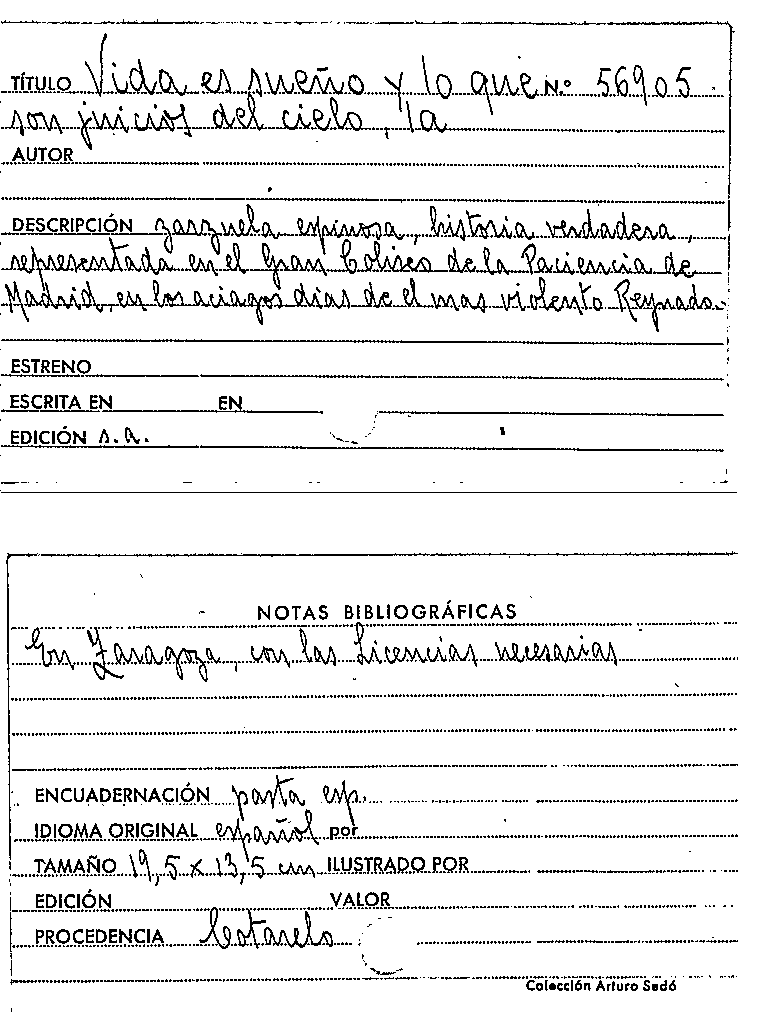 TÍTULO Vida es sueño y lo que N.º 56905
son juicios del cielo, la
AUTOR
DESCRIPCIÓN zarzuela espinosa, historia verdadera,
representada en el Gran Coliseo de la Paciencia de
Madrid, en los aciagos dias de el mas violento Reynado.
ESTRENO
ESCRITA EN EN
EDICIÓN s.a.
NOTAS BIBLIOGRÁFICAS
En Zaragoza, con las Licencias necesarias
ENCUADERNACIÓN pasta esp.
IDIOMA ORIGINAL español por
TAMAÑO 19,5 x 13,5 cm ILUSTRADO POR
EDICIÓN VALOR
PROCEDENCIA Cotarelo
Colección Arturo Sedó